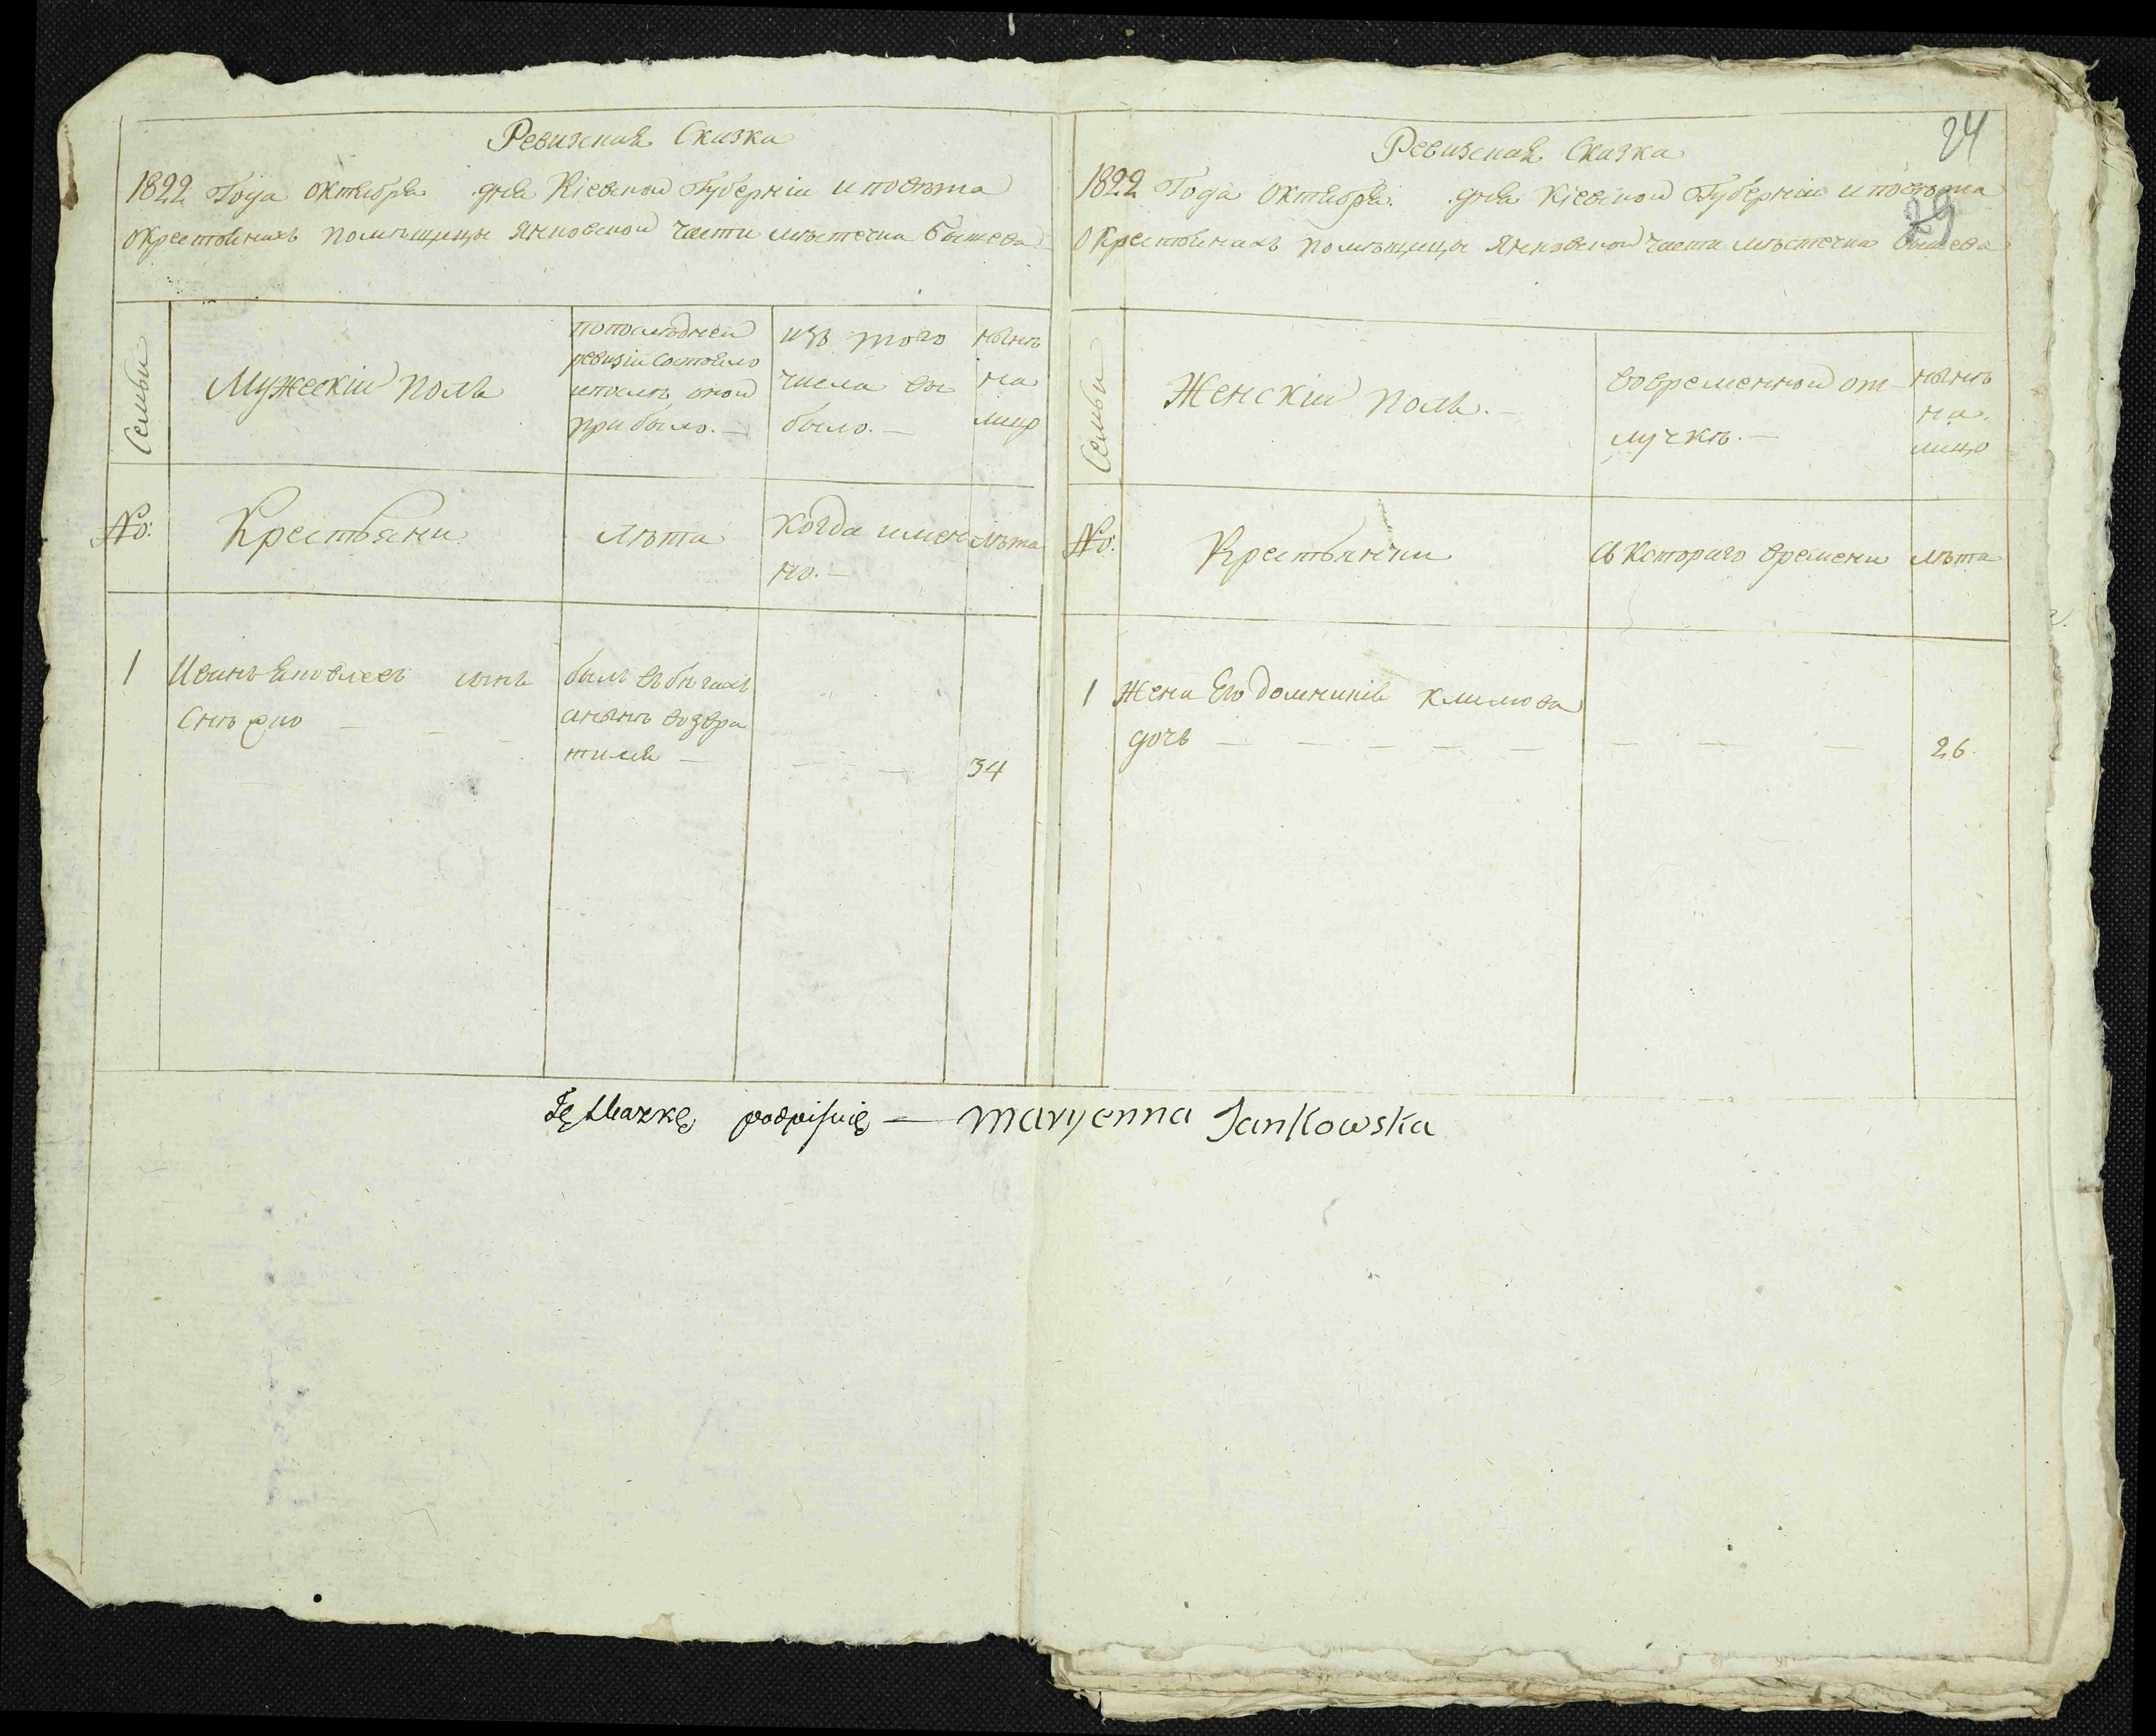 Ревизская Сказка
1822 Года октября дня Кіевской Губерніи и повѣта
о крестьянахъ помѣщицы Янковской части мѣстечка Бышева
Семьи
Мужескій полъ
по последней
ревизіи состояло
и послѣ оной
прибыло. —
изъ того
числа вы
было. —
нынѣ
на
лицо
No:
Крестьяни
лѣта
Когда имен
но. —
лѣта
1
Иванъ Яковлевъ сынъ
былъ въ бѣгахъ
а нынѣ возвра
тился —
34
24
29
Ревизская Сказка
1822 Года октября. дня Кіевской Губерніи и повѣта
о крестьянахъ помѣщицы Янковской части мѣстечка Бышева
Семьи
Женскій полъ. —
во временной от
лучкѣ. —
нынѣ
на
лицо
No:
Крестьянки
съ котораго времени
лѣта
1
Жена Его Домникія Климова
дочь — — — — — — — —
26.
Tę skazkę podpisuię — Maryenna Jankowska